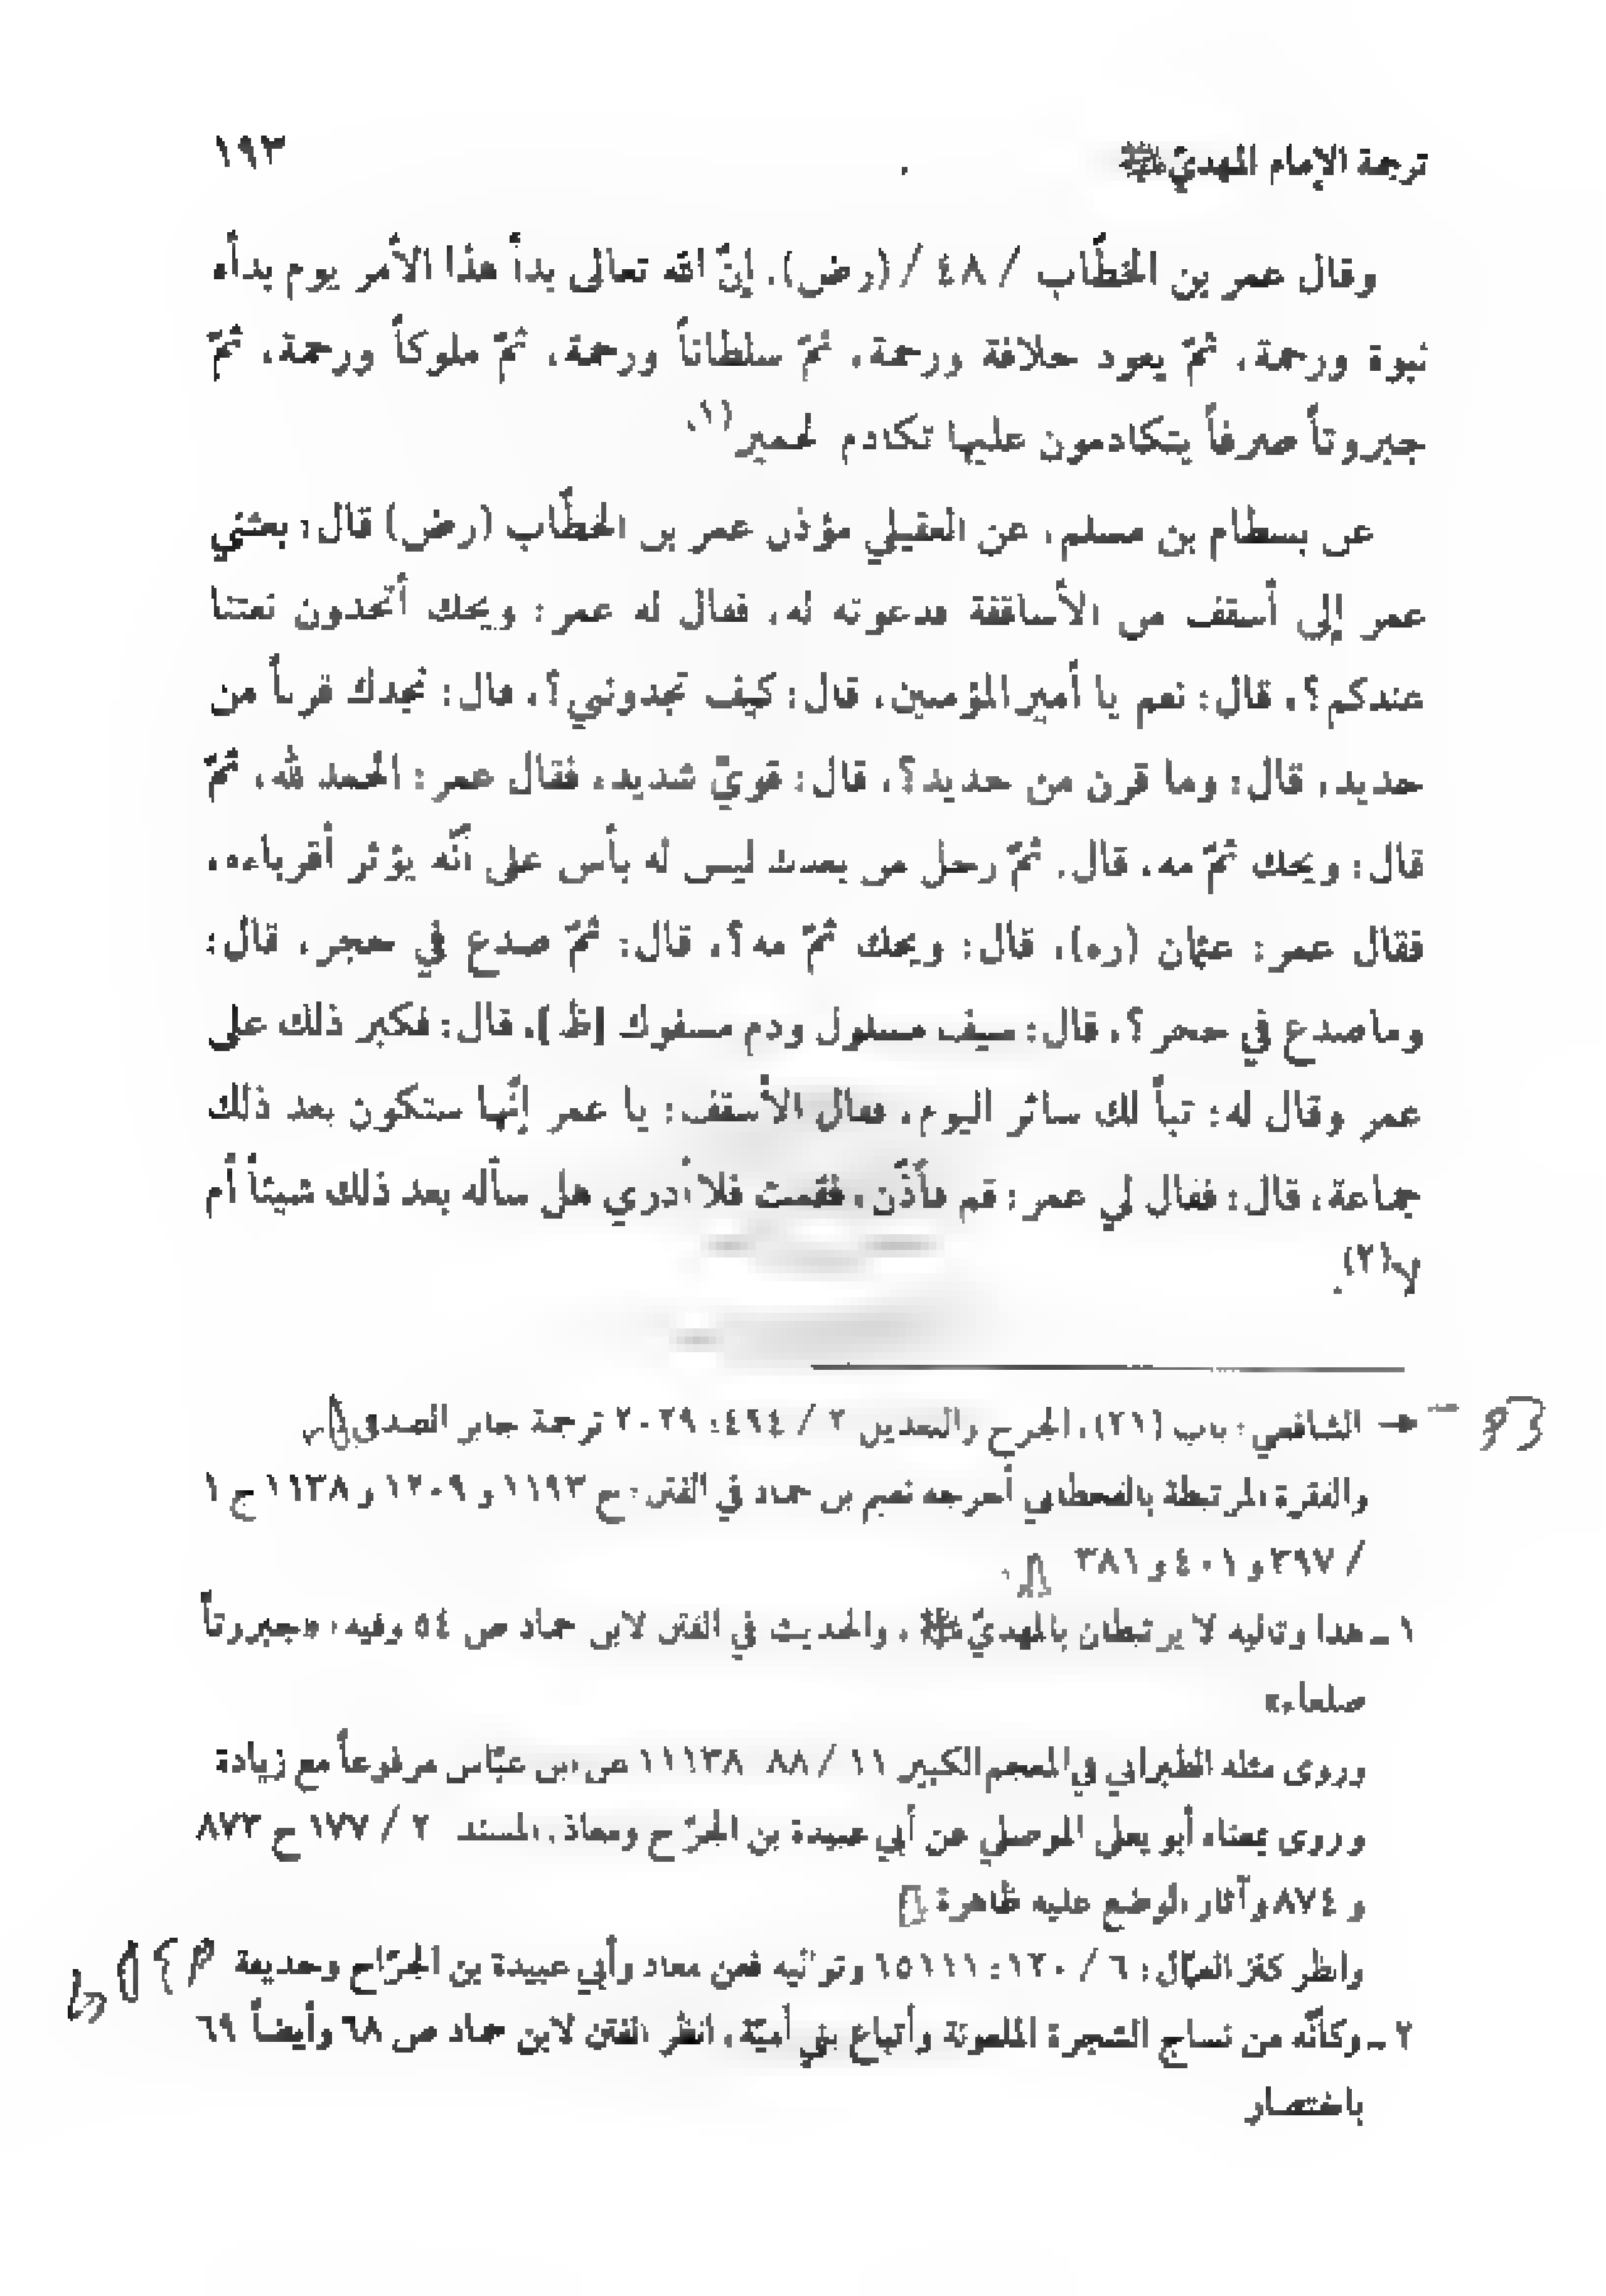 ترجمة الإمام المهديّ ﷺ ١٩٣
وقال عمر بن الخطّاب / ٤٨ / (رض). إنّ الله تعالى بدأ هذا الأمر يوم بدأه
نبوة ورحمة، ثمّ يعود خلافة ورحمة، ثمّ سلطاناً ورحمة، ثمّ ملوكاً ورحمة، ثمّ
جبروتاً صرفاً يتكادمون عليها تكادم لحمير(١).
عن بسطام بن مسلم، عن العقيلي مؤذن عمر بن الخطّاب (رض) قال: بعثني
عمر إلى أسقف من الأساقفة فدعوته له، فقال له عمر: ويحك أتجدون نعتنا
عندكم؟، قال: نعم يا أمير المؤمنين، قال: كيف تجدوني؟، قال: نجدك قرناً من
حديد، قال: وما قرن من حديد؟، قال: قويّ شديد، فقال عمر: الحمد لله، ثمّ
قال: ويحك ثمّ مه، قال. ثمّ رجل من بعدك ليس له بأس على أنّه يؤثر أقرباءه،
فقال عمر: عثمان (ره)، قال: ويحك ثمّ مه؟، قال: ثمّ صدع في حجر، قال:
وما صدع في حجر؟، قال: سيف مسلول ودم مسفوك [ظ]، قال: فكبر ذلك على
عمر وقال له: تباً لك سائر اليوم، فقال الأسقف: يا عمر إنّها ستكون بعد ذلك
جماعة، قال: فقال لي عمر: قم فأذّن، فقمت فلا أدري هل سأله بعد ذلك شيئاً أم
لا(٢).
الشافعي: باب (٢١)، الجرح والتعديل ٢ / ٤٩٤: ٢٠٢٩ ترجمة جابر الصدفي
والفقرة المرتبطة بالقحطاني أخرجه نعيم بن حماد في الفتن: ح ١١٩٣ و ١٢٠٩ و ١١٣٨ ج ١
/ ٣٩٧ و ٤٠١ و ٣٨١
١ ـ هذا وتاليه لا يرتبطان بالمهديّ ﷺ، والحديث في الفتن لابن حماد ص ٥٤ وفيه: «جبروتاً
صلعاء»
وروى مثله الطبراني في المعجم الكبير ١١ / ٨٨ ١١١٣٨ عن ابن عبّاس مرفوعاً مع زيادة
وروى بمعناه أبو يعلى الموصلي عن أبي عبيدة بن الجرّاح ومعاذ، المسند ٢ / ١٧٧ ح ٨٧٣
و ٨٧٤ وآثار الوضع عليه ظاهرة
وانظر كنز العمّال: ٦ / ١٢٠: ١٥١١١ وتواليه فعن معاذ وأبي عبيدة بن الجرّاح وحذيفة
٢ ـ وكأنّه من نساج الشجرة الملعونة وأتباع بني أميّة، انظر الفتن لابن حماد ص ٦٨ وأيضاً ٦٩
باختصار